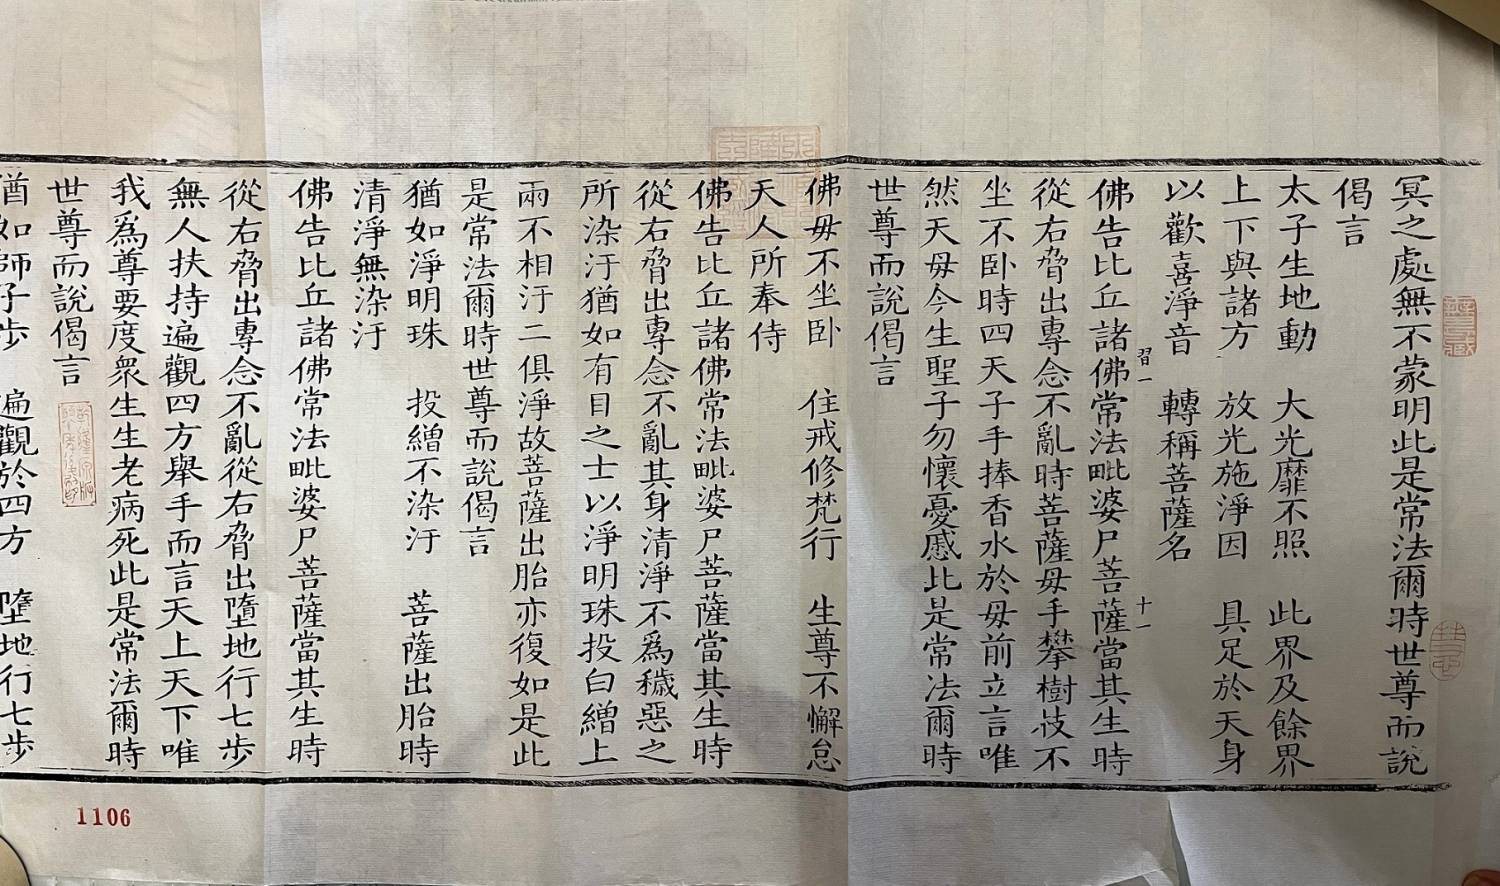 冥之處無不蒙明此是常法爾時世尊而說
偈言
太子生地動　大光靡不照　此界及餘界
上下與諸方　放光施淨因　具足於天身
以歡喜淨音　轉稱菩薩名
佛告比丘諸佛常法毗婆尸菩薩當其生時
習一　十一
從右脅出專念不亂時菩薩母手攀樹枝不
坐不卧時四天子手捧香水於母前立言唯
然天母今生聖子勿懷憂慼此是常法爾時
世尊而說偈言
佛母不坐卧　住戒修梵行　生尊不懈怠
天人所奉侍
佛告比丘諸佛常法毗婆尸菩薩當其生時
從右脅出專念不亂其身清淨不爲穢惡之
所染汙猶如有目之士以淨明珠投白繒上
兩不相汙二俱淨故菩薩出胎亦復如是此
是常法爾時世尊而說偈言
猶如淨明珠　投繒不染汙　菩薩出胎時
清淨無染汙
佛告比丘諸佛常法毗婆尸菩薩當其生時
從右脅出專念不亂從右脅出墮地行七步
無人扶持遍觀四方舉手而言天上天下唯
我爲尊要度衆生生老病死此是常法爾時
世尊而說偈言
猶如師子步　遍觀於四方　墮地行七步
1106